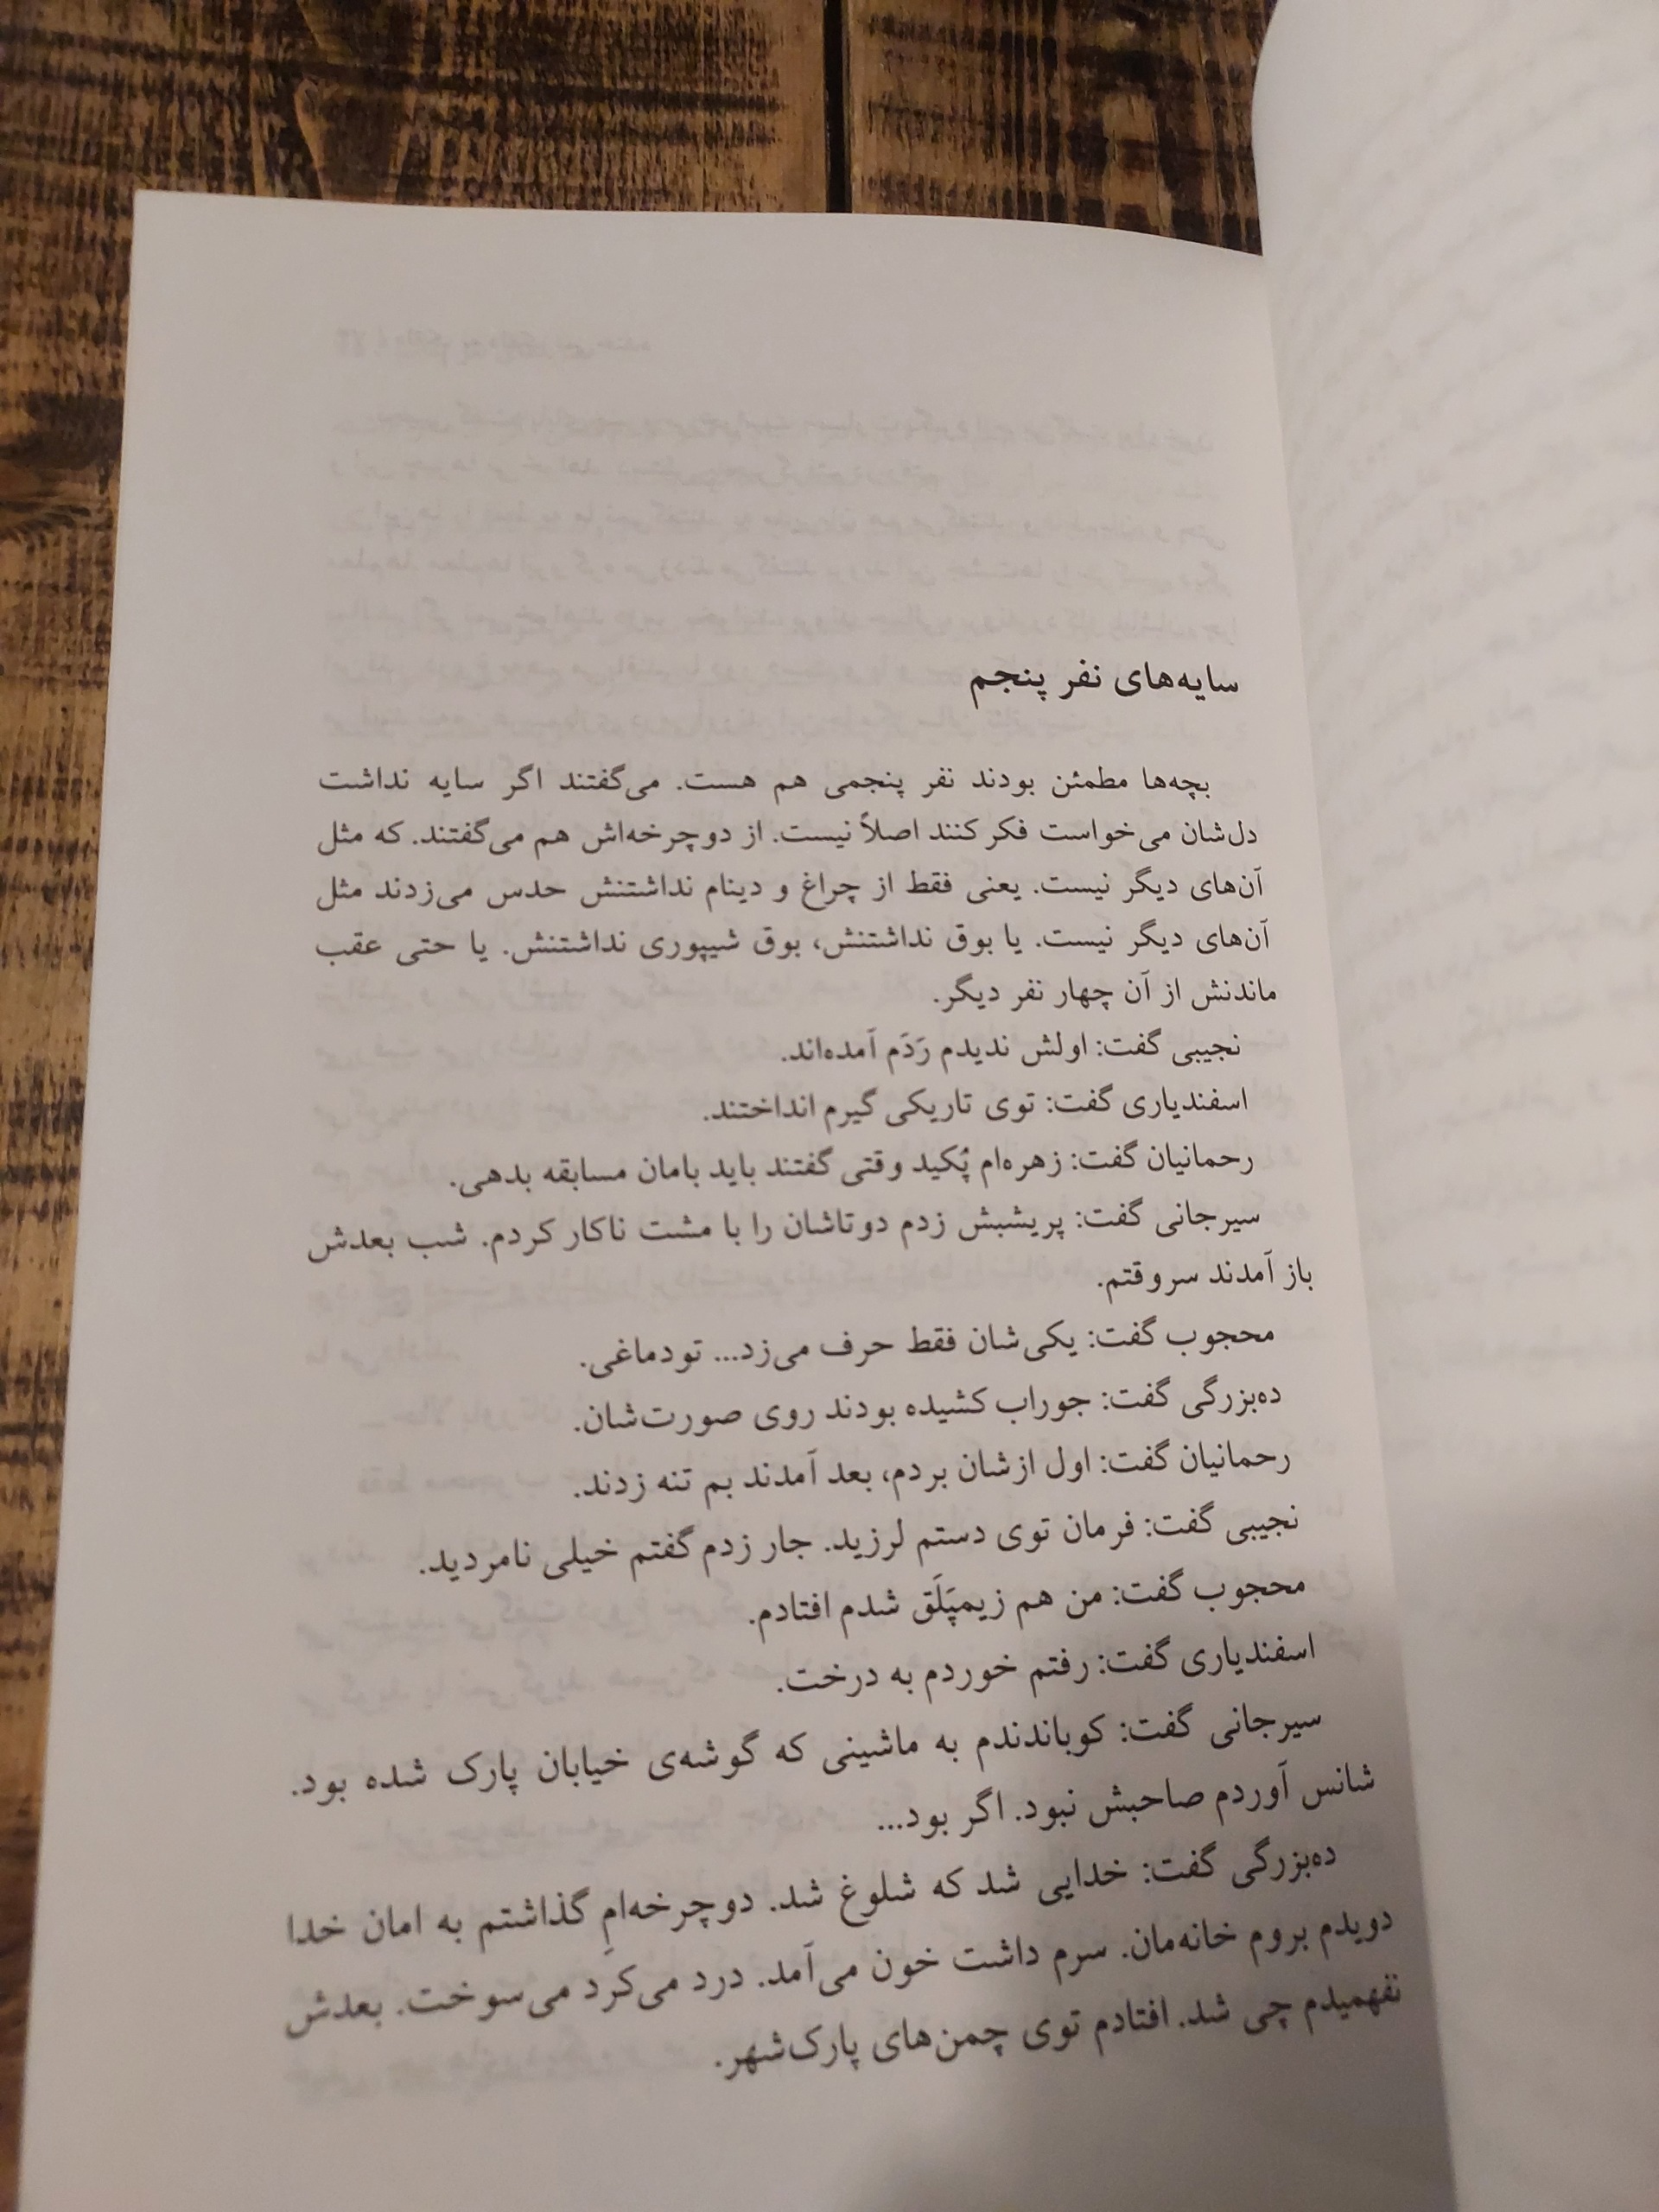 سایه‌های نفر پنجم
بچه‌ها مطمئن بودند نفر پنجمی هم هست. می‌گفتند اگر سایه نداشت
دل‌شان می‌خواست فکر کنند اصلاً نیست. از دوچرخه‌اش هم می‌گفتند. که مثل
آن‌های دیگر نیست. یعنی فقط از چراغ و دینام نداشتنش حدس می‌زدند مثل
آن‌های دیگر نیست. یا بوق نداشتنش، بوق شیپوری نداشتنش. یا حتی عقب
ماندنش از آن چهار نفر دیگر.
نجیبی گفت: اولش ندیدم رَدَم آمده‌اند.
اسفندیاری گفت: توی تاریکی گیرم انداختند.
رحمانیان گفت: زهره‌ام پُکید وقتی گفتند باید بامان مسابقه بدهی.
سیرجانی گفت: پریشبش زدم دوتاشان را با مشت ناکار کردم. شب بعدش
باز آمدند سروقتم.
محجوب گفت: یکی‌شان فقط حرف می‌زد... تودماغی.
ده‌بزرگی گفت: جوراب کشیده بودند روی صورت‌شان.
رحمانیان گفت: اول ازشان بردم، بعد آمدند بم تنه زدند.
نجیبی گفت: فرمان توی دستم لرزید. جار زدم گفتم خیلی نامردید.
محجوب گفت: من هم زیمپَلَق شدم افتادم.
اسفندیاری گفت: رفتم خوردم به درخت.
سیرجانی گفت: کوباندندم به ماشینی که گوشه‌ی خیابان پارک شده بود.
شانس آوردم صاحبش نبود. اگر بود...
ده‌بزرگی گفت: خدایی شد که شلوغ شد. دوچرخه‌امِ گذاشتم به امان خدا
دویدم بروم خانه‌مان. سرم داشت خون می‌آمد. درد می‌کرد می‌سوخت. بعدش
نفهمیدم چی شد. افتادم توی چمن‌های پارک‌شهر.